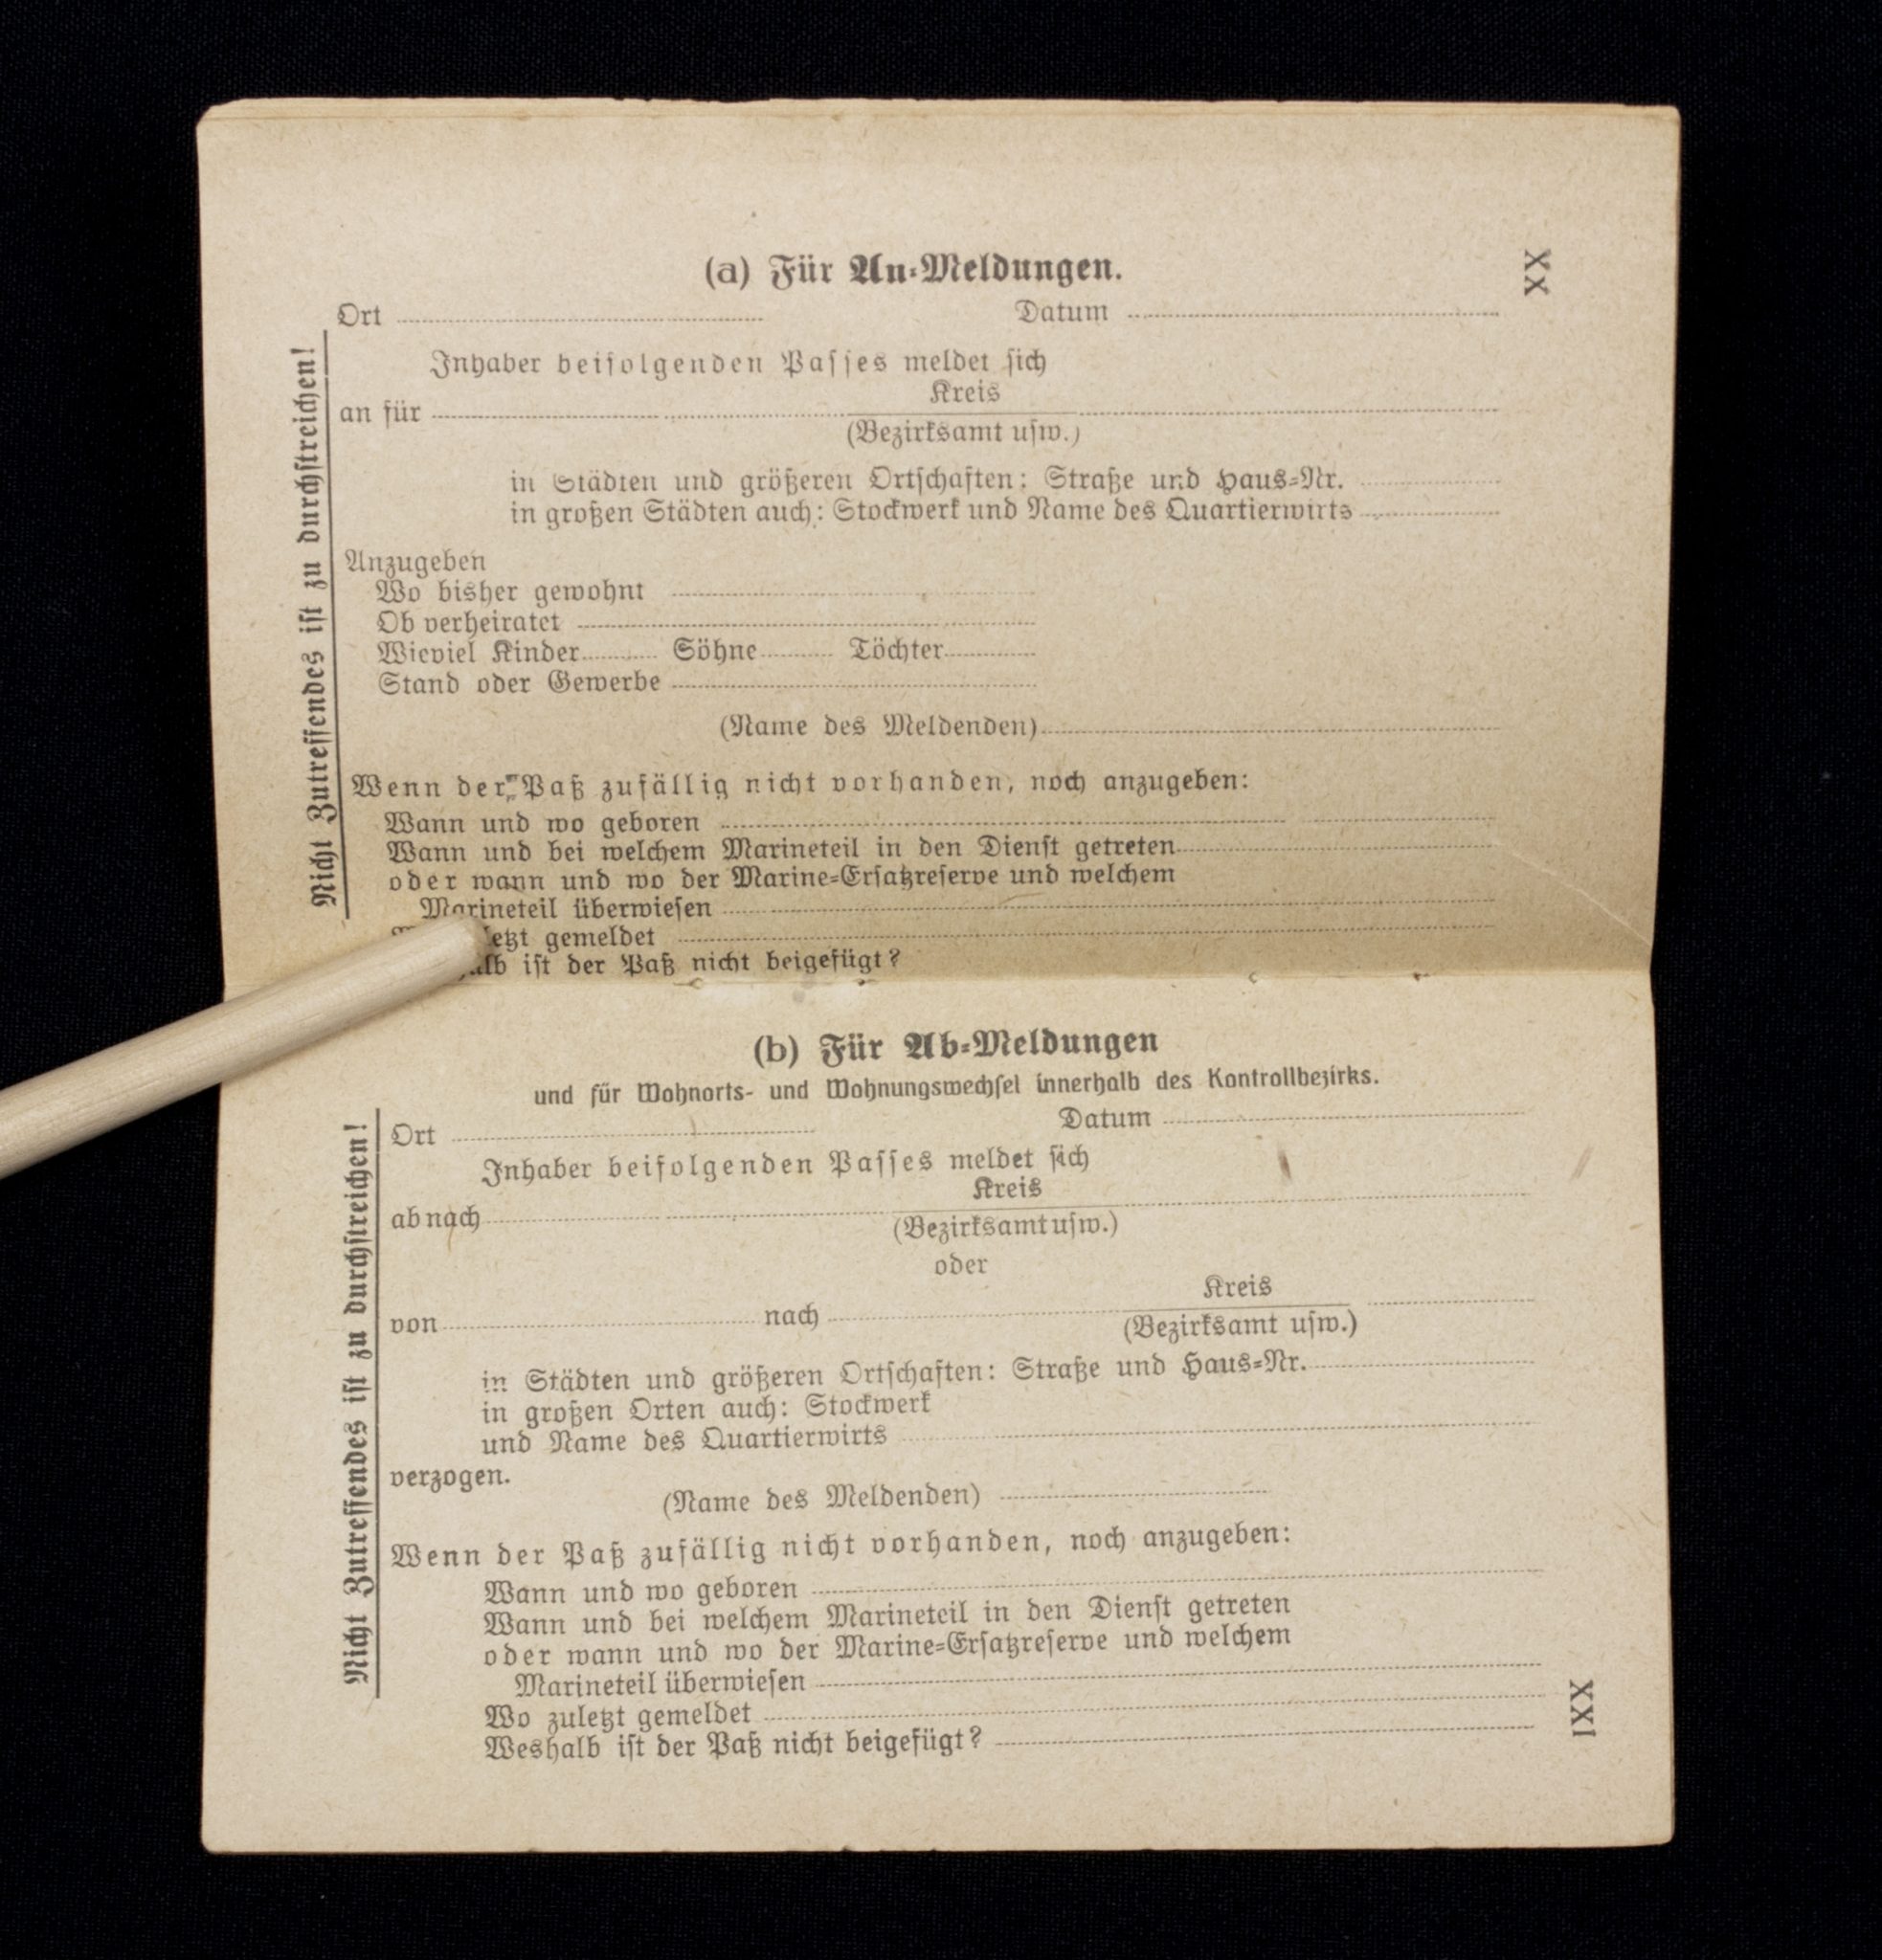 XX
(a) Für An-Meldungen.
Ort Datum
Inhaber beifolgenden Passes meldet sich
Kreis
an für
(Bezirksamt usw.)
in Städten und größeren Ortschaften: Straße und Haus-Nr.
in großen Städten auch: Stockwerk und Name des Quartierwirts
Anzugeben
Wo bisher gewohnt
Ob verheiratet
Wieviel Kinder Söhne Töchter
Stand oder Gewerbe
(Name des Meldenden)
Wenn der Paß zufällig nicht vorhanden, noch anzugeben:
Wann und wo geboren
Wann und bei welchem Marineteil in den Dienst getreten
oder wann und wo der Marine-Ersatzreserve und welchem
Marineteil überwiesen
gemeldet
ist der Paß nicht beigefügt?
Nicht Zutreffendes ist zu durchstreichen!
(b) Für Ab-Meldungen
und für Wohnorts- und Wohnungswechsel innerhalb des Kontrollbezirks.
Ort Datum
Inhaber beifolgenden Passes meldet sich
Kreis
ab nach
(Bezirksamt usw.)
oder
Kreis
von nach
(Bezirksamt usw.)
in Städten und größeren Ortschaften: Straße und Haus-Nr.
in großen Orten auch: Stockwerk
und Name des Quartierwirts
verzogen.
(Name des Meldenden)
Wenn der Paß zufällig nicht vorhanden, noch anzugeben:
Wann und wo geboren
Wann und bei welchem Marineteil in den Dienst getreten
oder wann und wo der Marine-Ersatzreserve und welchem
Marineteil überwiesen
Wo zuletzt gemeldet
Weshalb ist der Paß nicht beigefügt?
Nicht Zutreffendes ist zu durchstreichen!
XXI